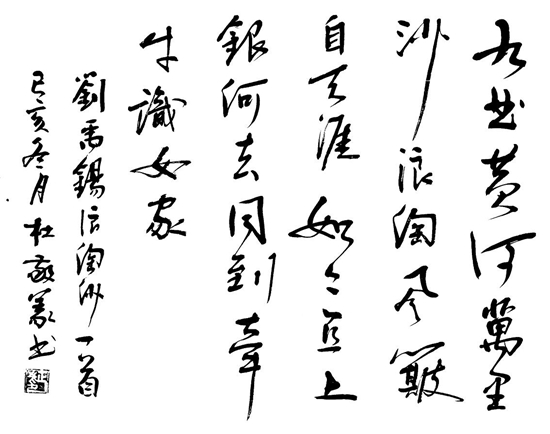 九曲黄河萬里
沙浪淘風簸
自天涯如今直上
銀河去同到牽
牛識女家
劉禹錫浪淘沙一首
己亥冬月杜敬義书